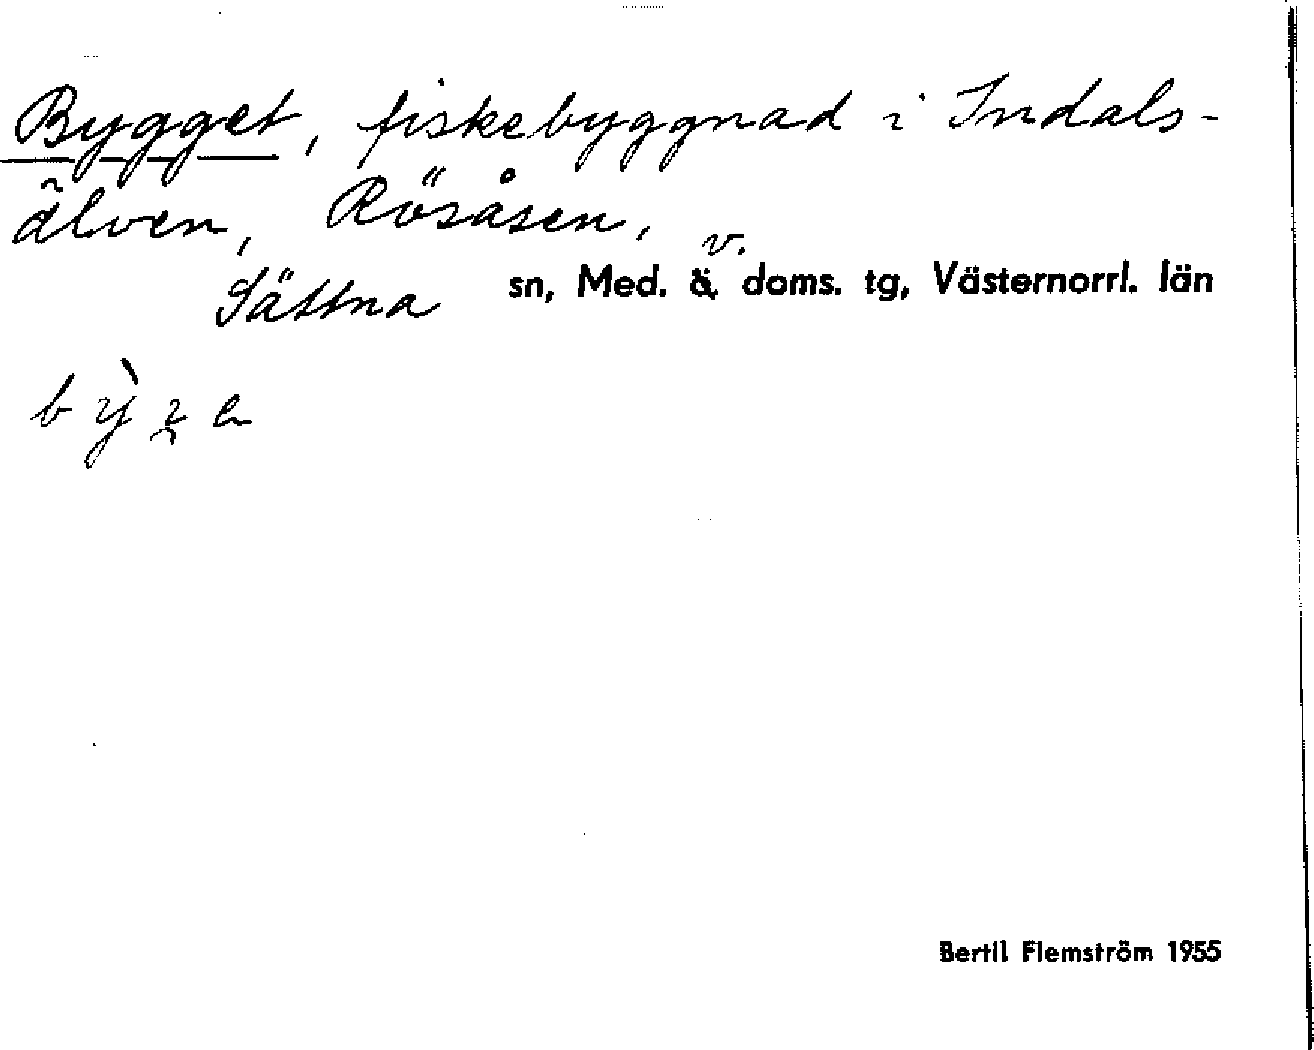 Bygget, fiskebyggnad i Indals-
älven, Rösåsen,
Sättna sn, Med. v. doms. tg, Västernorrl. län
Bertil Flemström 1955